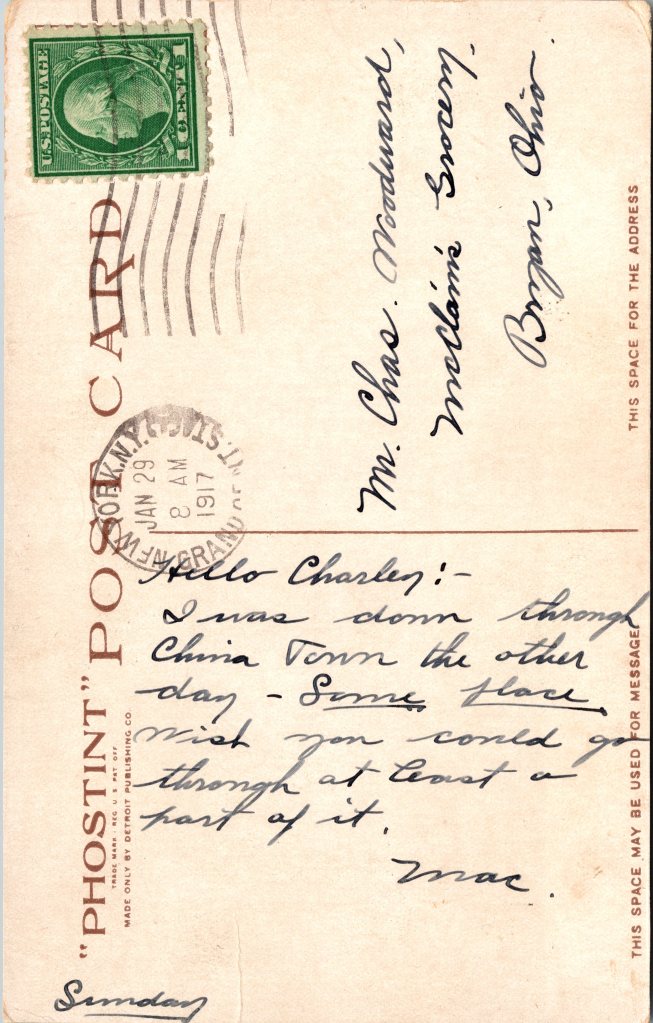 U.S. POSTAGE
1 CENT 1
"PHOSTINT" POST CARD
TRADE MARK - REG. U S PAT OFF
MADE ONLY BY DETROIT PUBLISHING CO.
NEW YORK, N.Y.
JAN 29
8 AM
1917
GRAND CENT. STA.
Mr. Chas. Woodward,
McClain's Grocery.
Bryan, Ohio.
THIS SPACE FOR THE ADDRESS
Hello Charley:-
I was down through
China Town the other
day - Some place.
Wish you could go
through at least a
part of it.
Mac.
Sunday
THIS SPACE MAY BE USED FOR MESSAGE